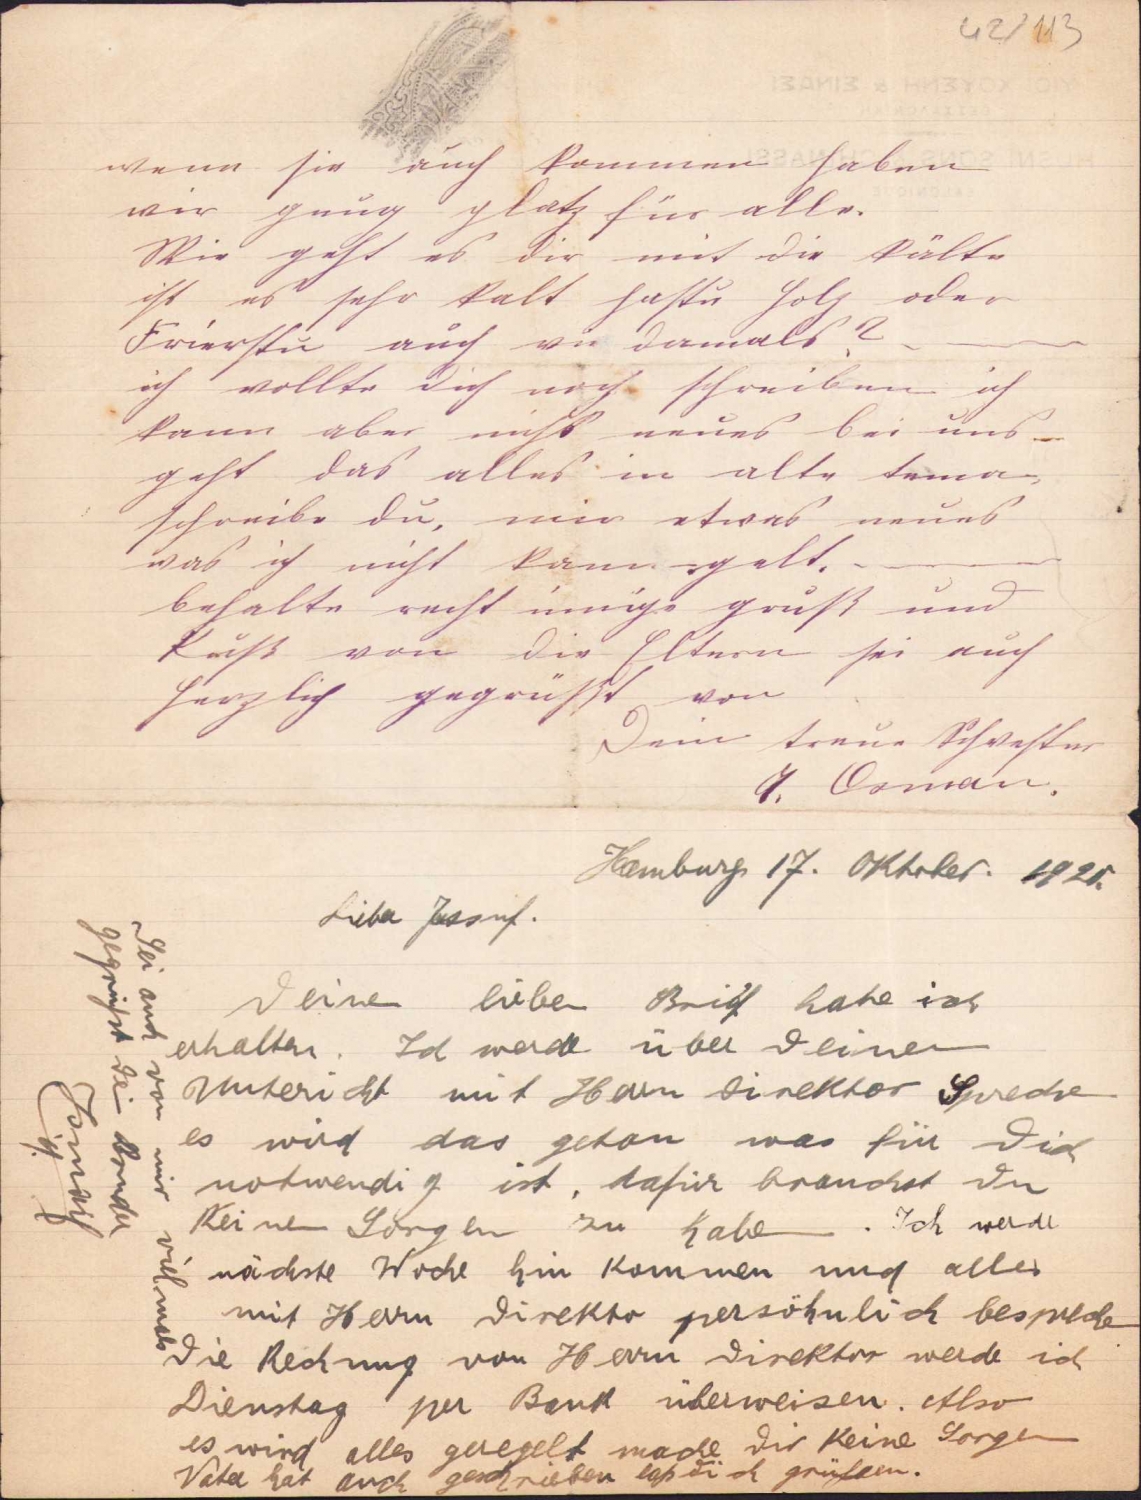 42/113
wenn sie auch kommen haben
wir genug platz für alle.
Wie geht es dir mit die kälte
ist es sehr kalt hasstu Holz oder
Frierstu auch wie damals?
ich wollte dich noch schreiben ich
kann aber nichts neues bei uns
geht das alles in alte tema.
schreibe du, mir etwas neues
was ich nicht kann gelt.
behalte recht innige gruß und
kuß von die Eltern sei auch
herzlich gegrüßt von
Dein treue Schwester
J. Osman.
Hamburg 17. Oktober. 1921.
Lieber Jussuf.
Deinen lieben Brief habe ich
erhalten. Ich werde über Deinen
Untericht mit Herrn Direktor Spreche
es wird das getan was für Dich
notwendig ist, dafür brauchst Du
Keinen Sorgen zu habe. Ich werde
nächste Woche hin kommen und alles
mit Herrn Direktor persöhnlich bespreche
Die Rechnung von Herrn Direktor werde ich
Dienstag per Bank überweisen. Also
es wird alles geregelt mache Dir Keine Sorgen
Vater hat auch geschrieben läß dich grüßen.
Sei auch von mir vielmals
gegrüßt Dei Bruder